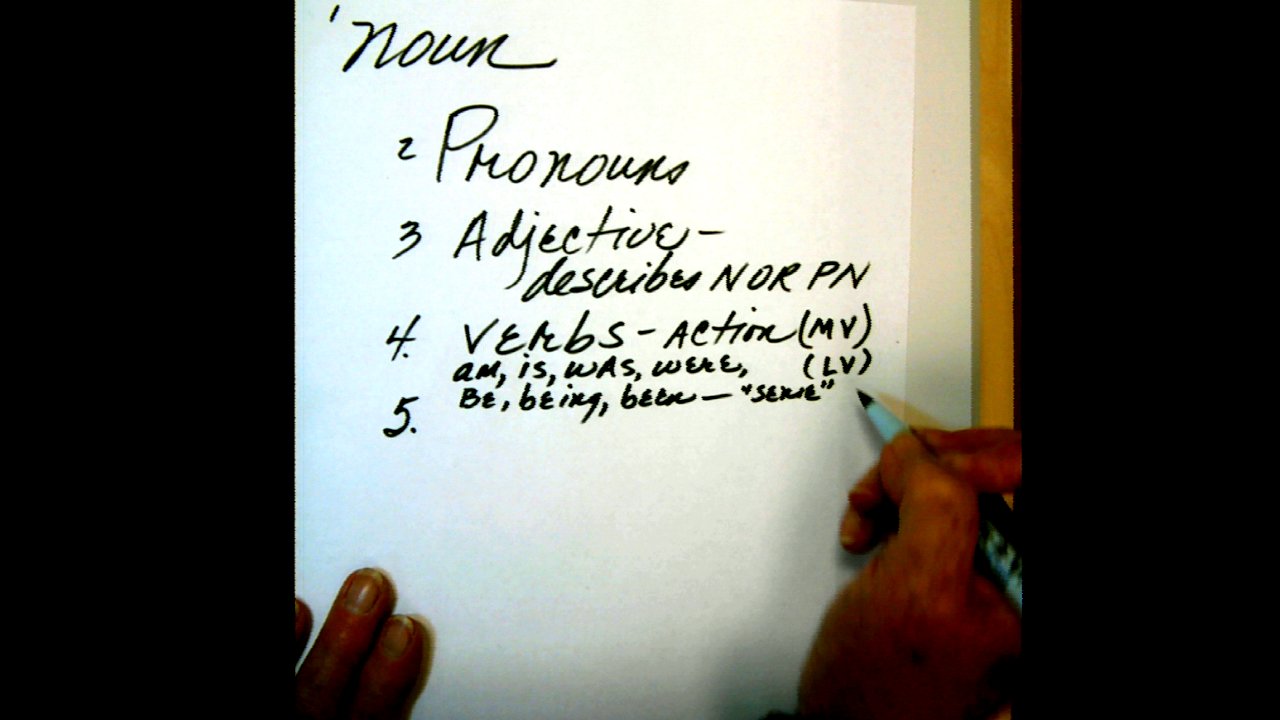 1 Noun
2 Pronouns
3 Adjective -
describes N OR PN
4. Verbs - Action (MV)
am, is, was, were, (LV)
Be, being, been — "sense"
5.